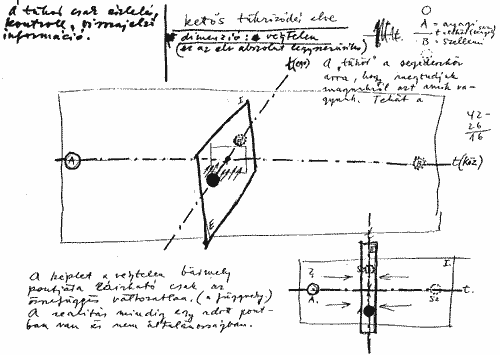 A tükör csak észlelés
kontroll, visszajelző
információ.
kettős tükröződés elve
dimenzió: végtelen
(ez az elv abszolut legegyszerűbb)
t(ego)
A = anyagi
B = szellemi
A „tükör" a segédeszköz
arra, hogy megtudjuk
magunkról azt amik va-
gyunk. Tehát a
42-
26
16
I.
A
B
t(köz)
E
A képlet a végtelen bármely
pontjára leírható csak az
összefüggés változatlan. (a függvény)
A realitás mindig egy adott pont-
ban van és nem általánosságban.
I.
2.
A.
Sz
t.